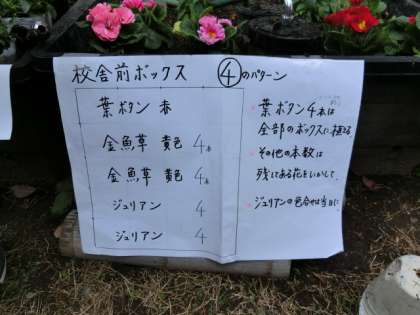 校舎前ボックス ④のパターン
葉ボタン 赤
金魚草 黄色 4本
金魚草 黄色 4本
ジュリアン 4
ジュリアン 4
・葉ボタン4本は
全部のボックスに植える
・その他の本数は
残してある花をいかして。
・ジュリアンの色合せは当日に